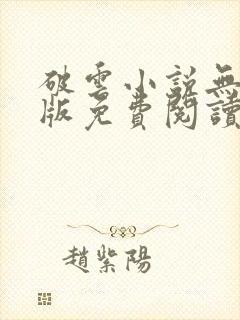 破雲小説無
版免費閱讀
趙紫陽